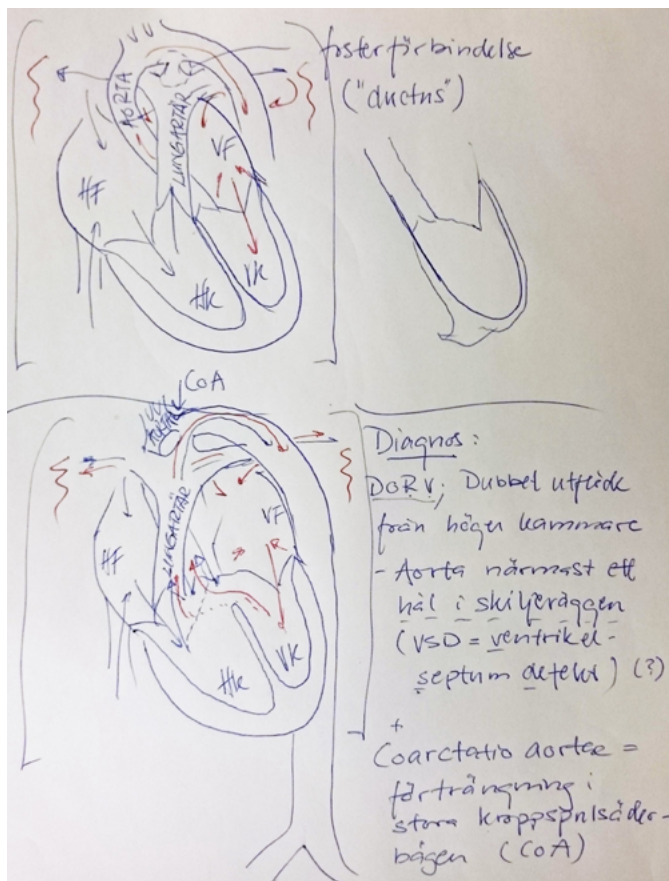 fosterförbindelse
("ductus")
AORTA
LUNGARTÄR
VF
HF
HK
VK
CoA
AORTA
LUNGARTÄR
VF
HF
HK
VK
Diagnos:
DORV; Dubbel utflöde
från höger kammare
- Aorta närmast ett
hål i skiljeväggen
(VSD = ventrikel-
septum defekt) (?)
+
Coarctatio aortae =
förträngning i
stora kroppspulsåder-
bågen (CoA)